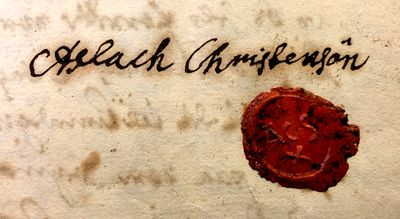 Aslach Christensön